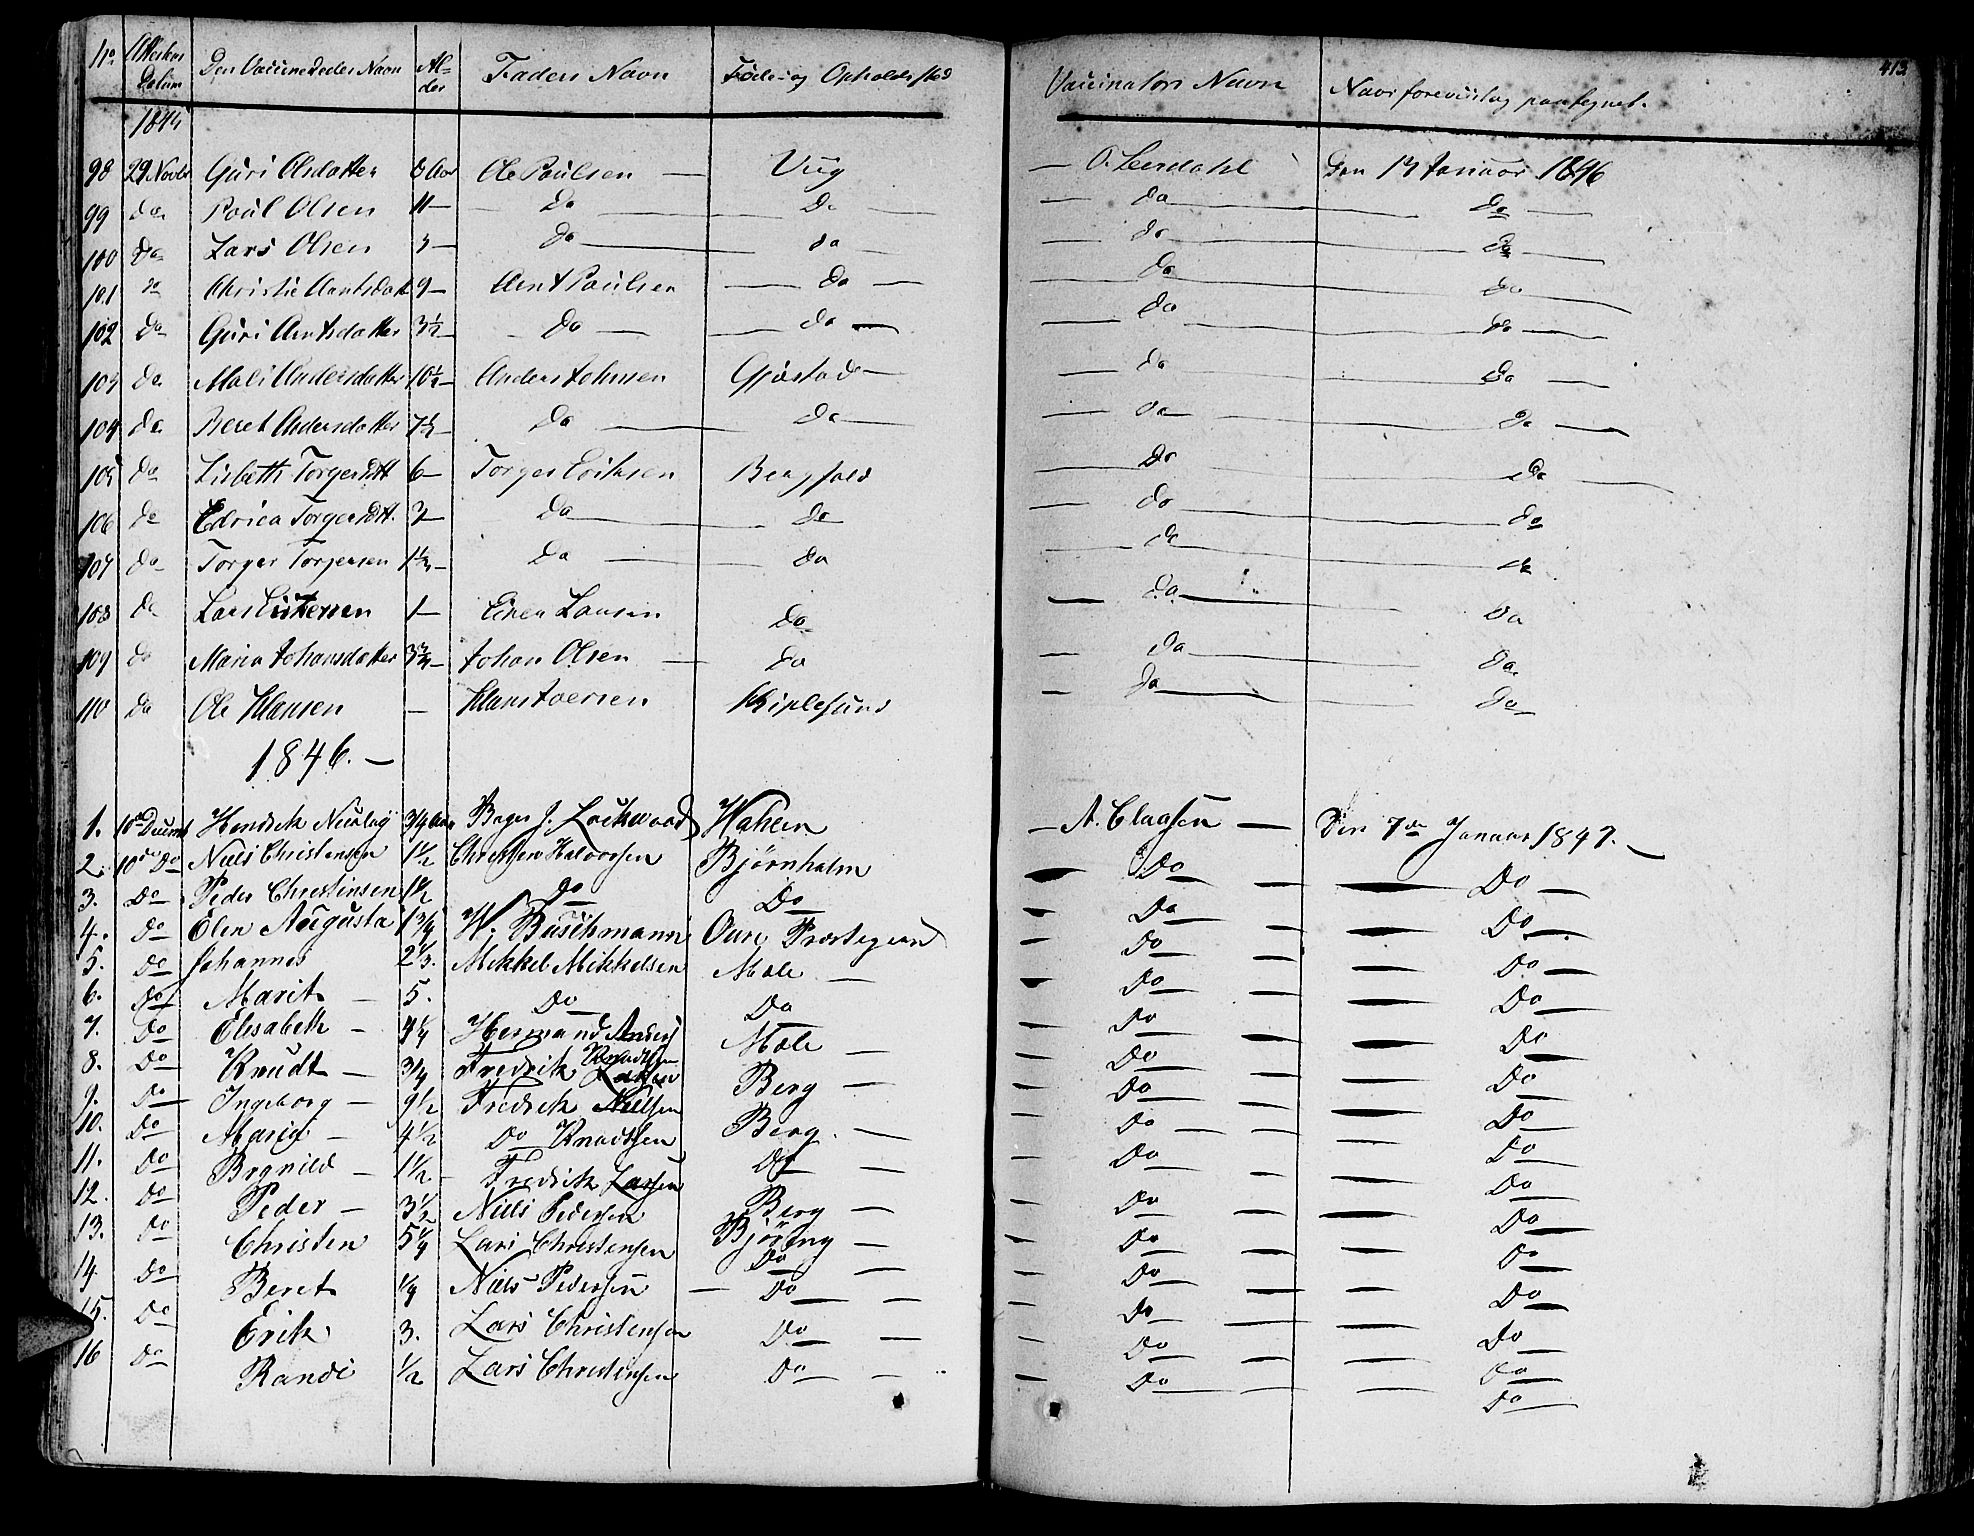 No Attestens Datum Den Vaccineredes Navn Alder Faders Navn Føde- og Opholdssted Vaccinators Navn Naar forevist og paategnet. 413
1845
98 29 Novbr Guri Olsdatter 8 Aar Ole Paulsen — Viig — O. Leirdahl Den 14 Januar 1846
99 do Paul Olsen 11— do — Do — do — do —
100 Do Lars Olsen 3— do — do — do — do —
101 do Christie Arntsdatt 9— Arnt Paulsen — do — do — do
102 do Guri Arntsdatter 3½— do — do — do — do —
103 do Mali Andersdatter 10½— Anders Johnsen Gjøstad — do — do —
104 do Beret Andersdatter 7½— do — do — do — do —
105 do Lisbeth Torgersdtt 6— Torger Eriksen Bergfald — do — do —
106 do Edvica Torgersdtt. 3— do — do — do — do
107 do Torger Torgersen 1½— do — do — do — do
108 do Lars 1— Einer Larsen do — do — do
109 do Maria Johansdatter 3¾— Johan Olsen — do — do — do
110 do Ole Hansen — Hans Iversen — do — do
1846. —
1. 10de Decemb Hendrik 3/4 Aar Bager J. Lockwood — A. Claasen — Den 7de Januar 1847. —
2. 10de Do Niels Christensen 1½ Christen Halvorsen Bjørnholm Do — Do —
3. Do Peder Christensen 1½ Do Do Do — Do
4. Do Elen Augusta 1¾ W. Buschmann Oure Præstegaard Do — Do
5. Do Johannes 2⅓ Mikkel Mikkelsen Mæle — Do — Do
6. Do Marit — 5. Do Do Do — Do
7. Do Elisabeth — 4¼ Hermand Anders Mæle — Do — Do
8. Do Knudt — 3/4 Fredrik Knudtsen Larsen Berg — Do — Do
9. Do Ingeborg — 9½ Fredrik Nielsen Berg — Do — Do
10. Do Maria — 4½ Do Knudtsen Do — Do — Do
11. Do Brynild — 1½ Fredrik Larsen Berg — Do — Do
12. Do Peder — 3½ Niels Pedersen Bjøring — Do — Do
13. Do Christen 5¼ Lars Christensen Do — Do — Do
14. Do Beret ¼ Niels Pedersen — Do — Do — Do
15. Do Erik 3. Lars Christensen Do — Do — Do
16 Do Randi ½ Lars Christensen Do — Do — Do